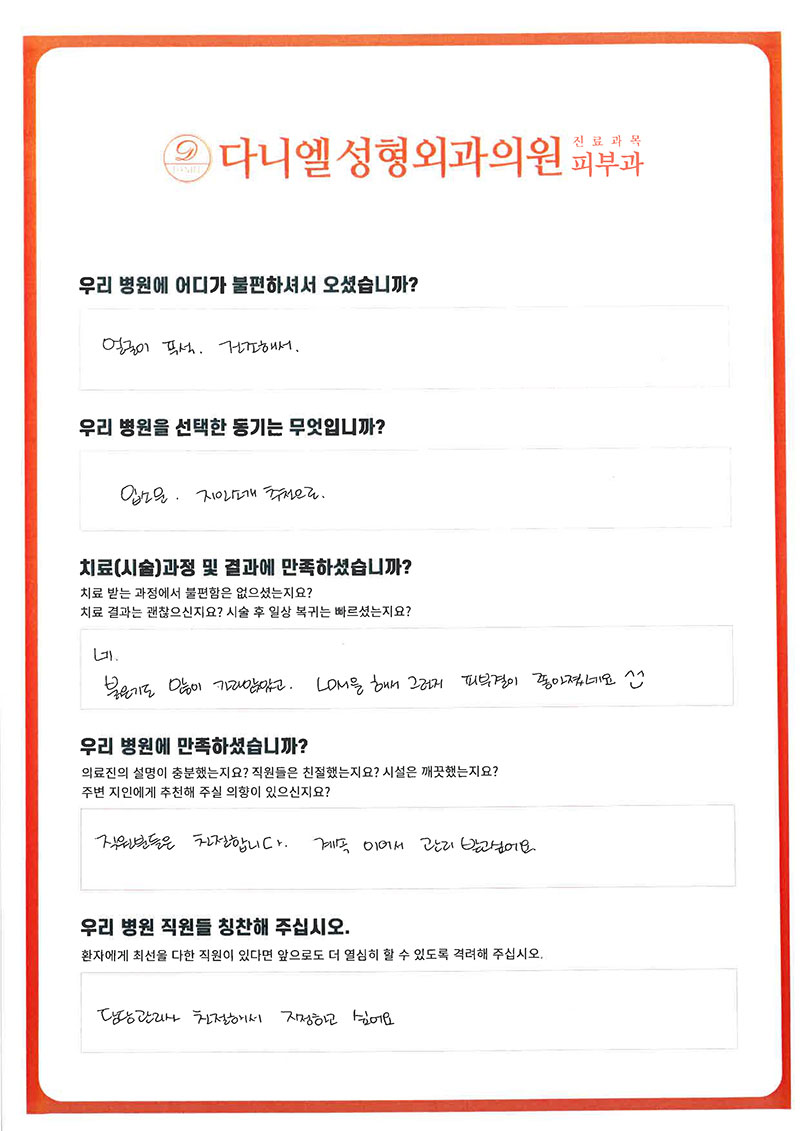 다니엘성형외과의원
진료과목
피부과
우리 병원에 어디가 불편하셔서 오셨습니까?
얼굴이 푸석. 건조해서.
우리 병원을 선택한 동기는 무엇입니까?
입소문. 지인소개 추천으로.
치료(시술)과정 및 결과에 만족하셨습니까?
치료 받는 과정에서 불편함은 없으셨는지요?
치료 결과는 괜찮으신지요? 시술 후 일상 복귀는 빠르셨는지요?
네.
붉은기도 많이 가라앉았고. LDM을 해서 그런지 피부결이 좋아졌네요 ^^
우리 병원에 만족하셨습니까?
의료진의 설명이 충분했는지요? 직원들은 친절했는지요? 시설은 깨끗했는지요?
주변 지인에게 추천해 주실 의향이 있으신지요?
직원분들은 친절합니다. 계속 이어서 관리 받고싶어요.
우리 병원 직원들 칭찬해 주십시오.
환자에게 최선을 다한 직원이 있다면 앞으로도 더 열심히 할 수 있도록 격려해 주십시오.
담당관리사 친절해서 지정하고 싶어요